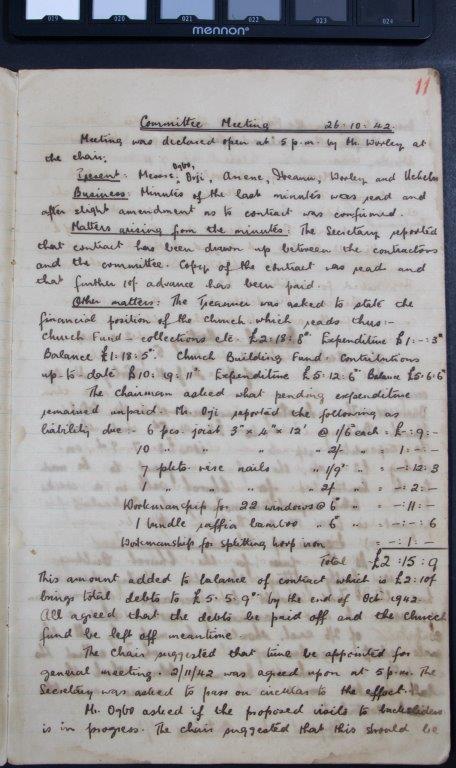 019 020 021 022 023 024
mennon
11
Committee Meeting 26.10.42.
Meeting was declared open at 5 p.m. by Mr. Worley at
the chair.
Ogbo,
Present: Messrs. Orji, Anene, Worley and
Business: Minutes of the last minutes was read and
after slight amendment as to contract was confirmed.
Matters arising from the minutes: The Secretary reported
that contract has been drawn up between the contractors
and the committee. Copy of the contract was read and
that further 10/ advance has been paid.
Other matters: The Treasurer was asked to state the
financial position of the church which reads thus:-
Church Fund - collections etc. £2:18:8" Expenditure £1:-:3"
Balance £1:18:5" Church Building Fund. Contributions
up-to-date £10:19:11" Expenditure £5:12:6" Balance £5:6:6"
The Chairman asked what pending expenditure
remained unpaid. Mr. Oji reported the following as
liability due:- 6 pcs. joist 3" x 4" x 12' @ 1/6 each = £-:9:-
10 " " " " 2/- " = 1:-:-
7 pkts wire nails " 1/9" " = -:12:3
1 " " " " 2/- " = -:2:-
Workmanship for 22 windows @ 6" " = -:11:-
1 bundle raffia bamboo " 6" " -:-:6
Workmanship for splitting hoop iron = -:1:-
Total £2:15:9
This amount added to balance of contract which is £2:10/
brings total debts to £5.5.9" by the end of Oct 1942.
All agreed that the debts be paid off and the church
fund be left off meantime
The Chair suggested that time be appointed for
general meeting. 2/11/42 was agreed upon at 5 p.m. The
Secretary was asked to pass on circular to the effect.
Mr. Ogbo asked if the proposed visits to backsliders
is in progress. The chair suggested that this should be